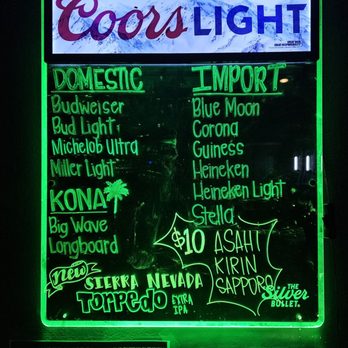 Coors LIGHT
DOMESTIC
Budweiser
Bud Light
Michelob Ultra
Miller Light
KONA
Big Wave
Longboard
IMPORT
Blue Moon
Corona
Guiness
Heineken
Heineken Light
Stella
$10 ASAHI
KIRIN
SAPPORO
New
SIERRA NEVADA
TORPEDO EXTRA
IPA
THE
Silver
BULLET.